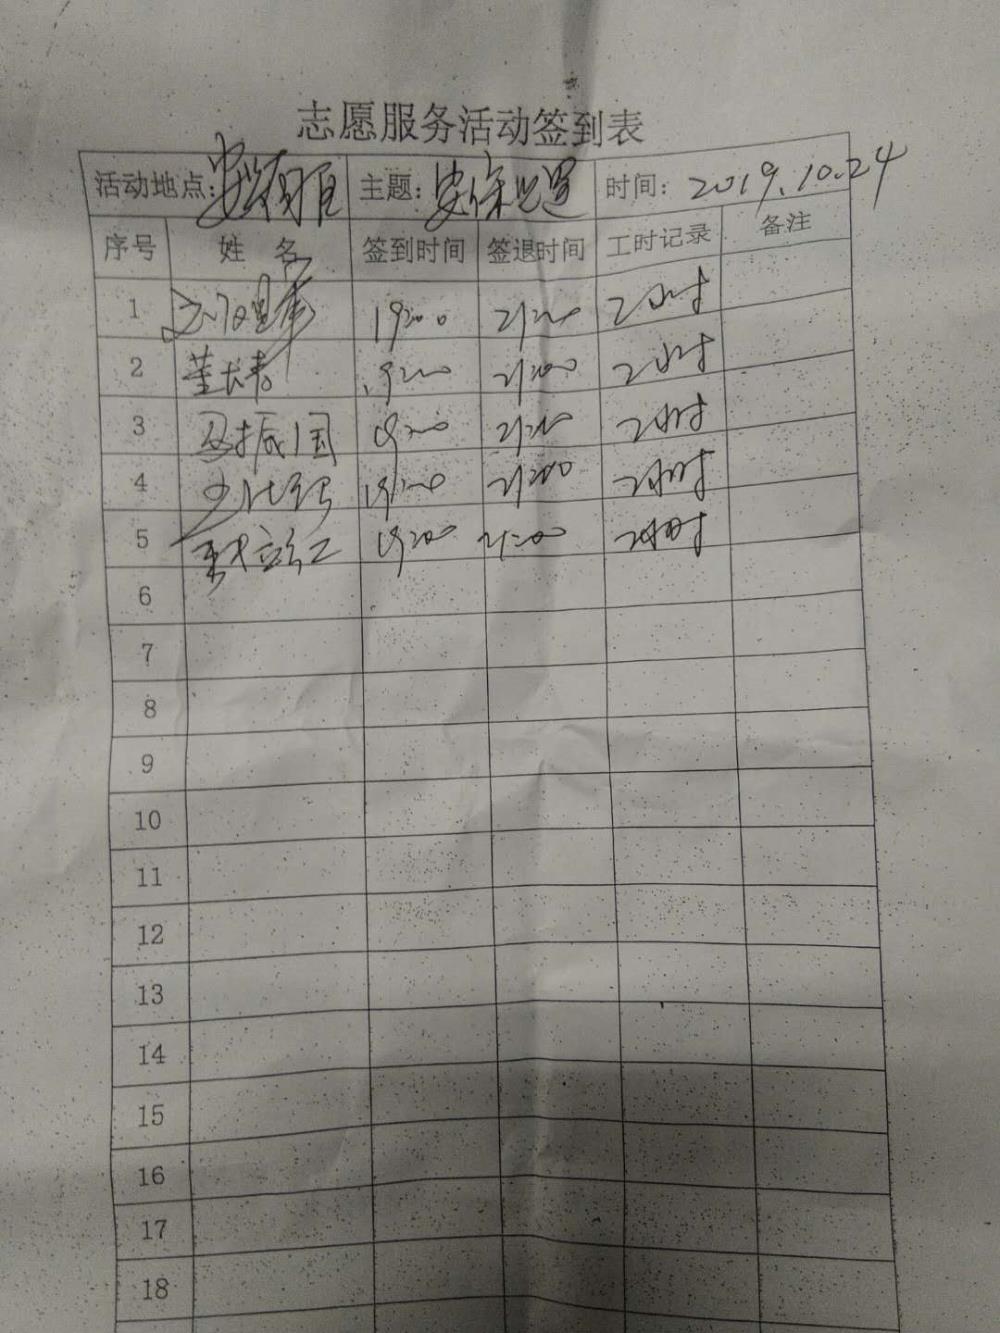 志愿服务活动签到表
活动地点: 主题: 时间: 2019.10.24
序号 姓名 签到时间 签退时间 工时记录 备注
1 19:00 21:00 2小时
2 董长青 19:00 21:00 2小时
3 振国 19:00 21:00 2小时
4 19:00 21:00 2小时
5 19:00 21:00 2小时
6
7
8
9
10
11
12
13
14
15
16
17
18